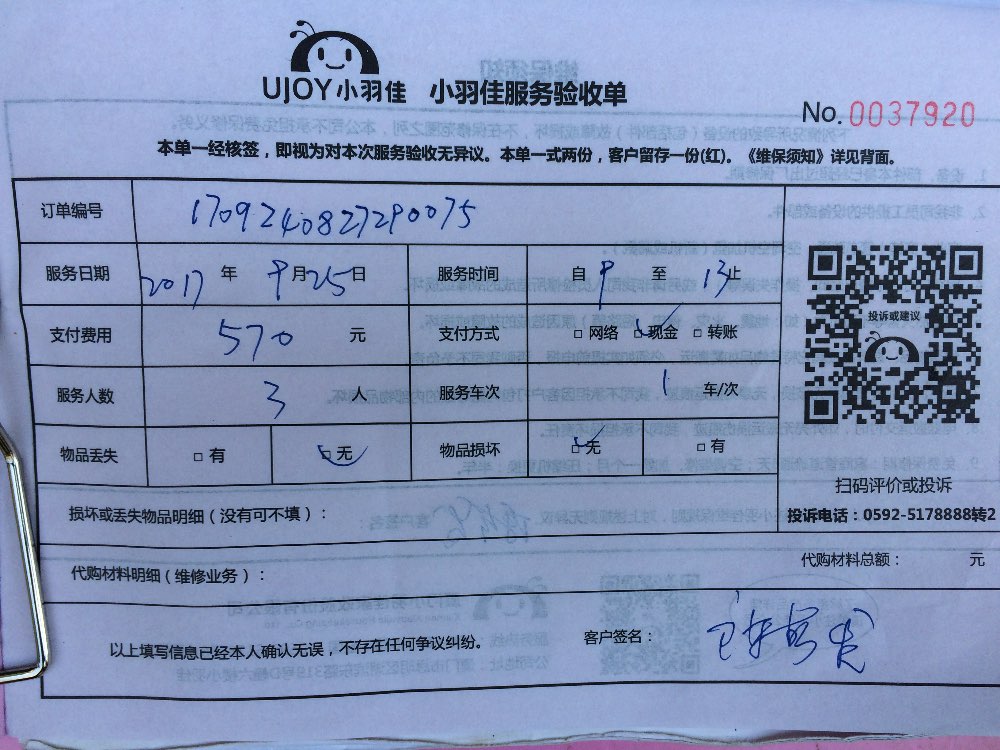 UJOY小羽佳 小羽佳服务验收单
No. 0037920
本单一经核签，即视为对本次服务验收无异议。本单一式两份，客户留存一份(红)。《维保须知》详见背面。
订单编号 170924082729007​5
服务日期 2017 年 9 月 25 日 服务时间 自 9 至 13 止
支付费用 570 元 支付方式 □ 网络 □ 现金 □ 转账
服务人数 3 人 服务车次 1 车/次
物品丢失 □ 有 □ 无 物品损坏 □ 无 □ 有
投诉或建议
扫码评价或投诉
投诉电话：0592-5178888转2
损坏或丢失物品明细（没有可不填）：
代购材料明细（维修业务）： 代购材料总额： 元
以上填写信息已经本人确认无误，不存在任何争议纠纷。 客户签名：